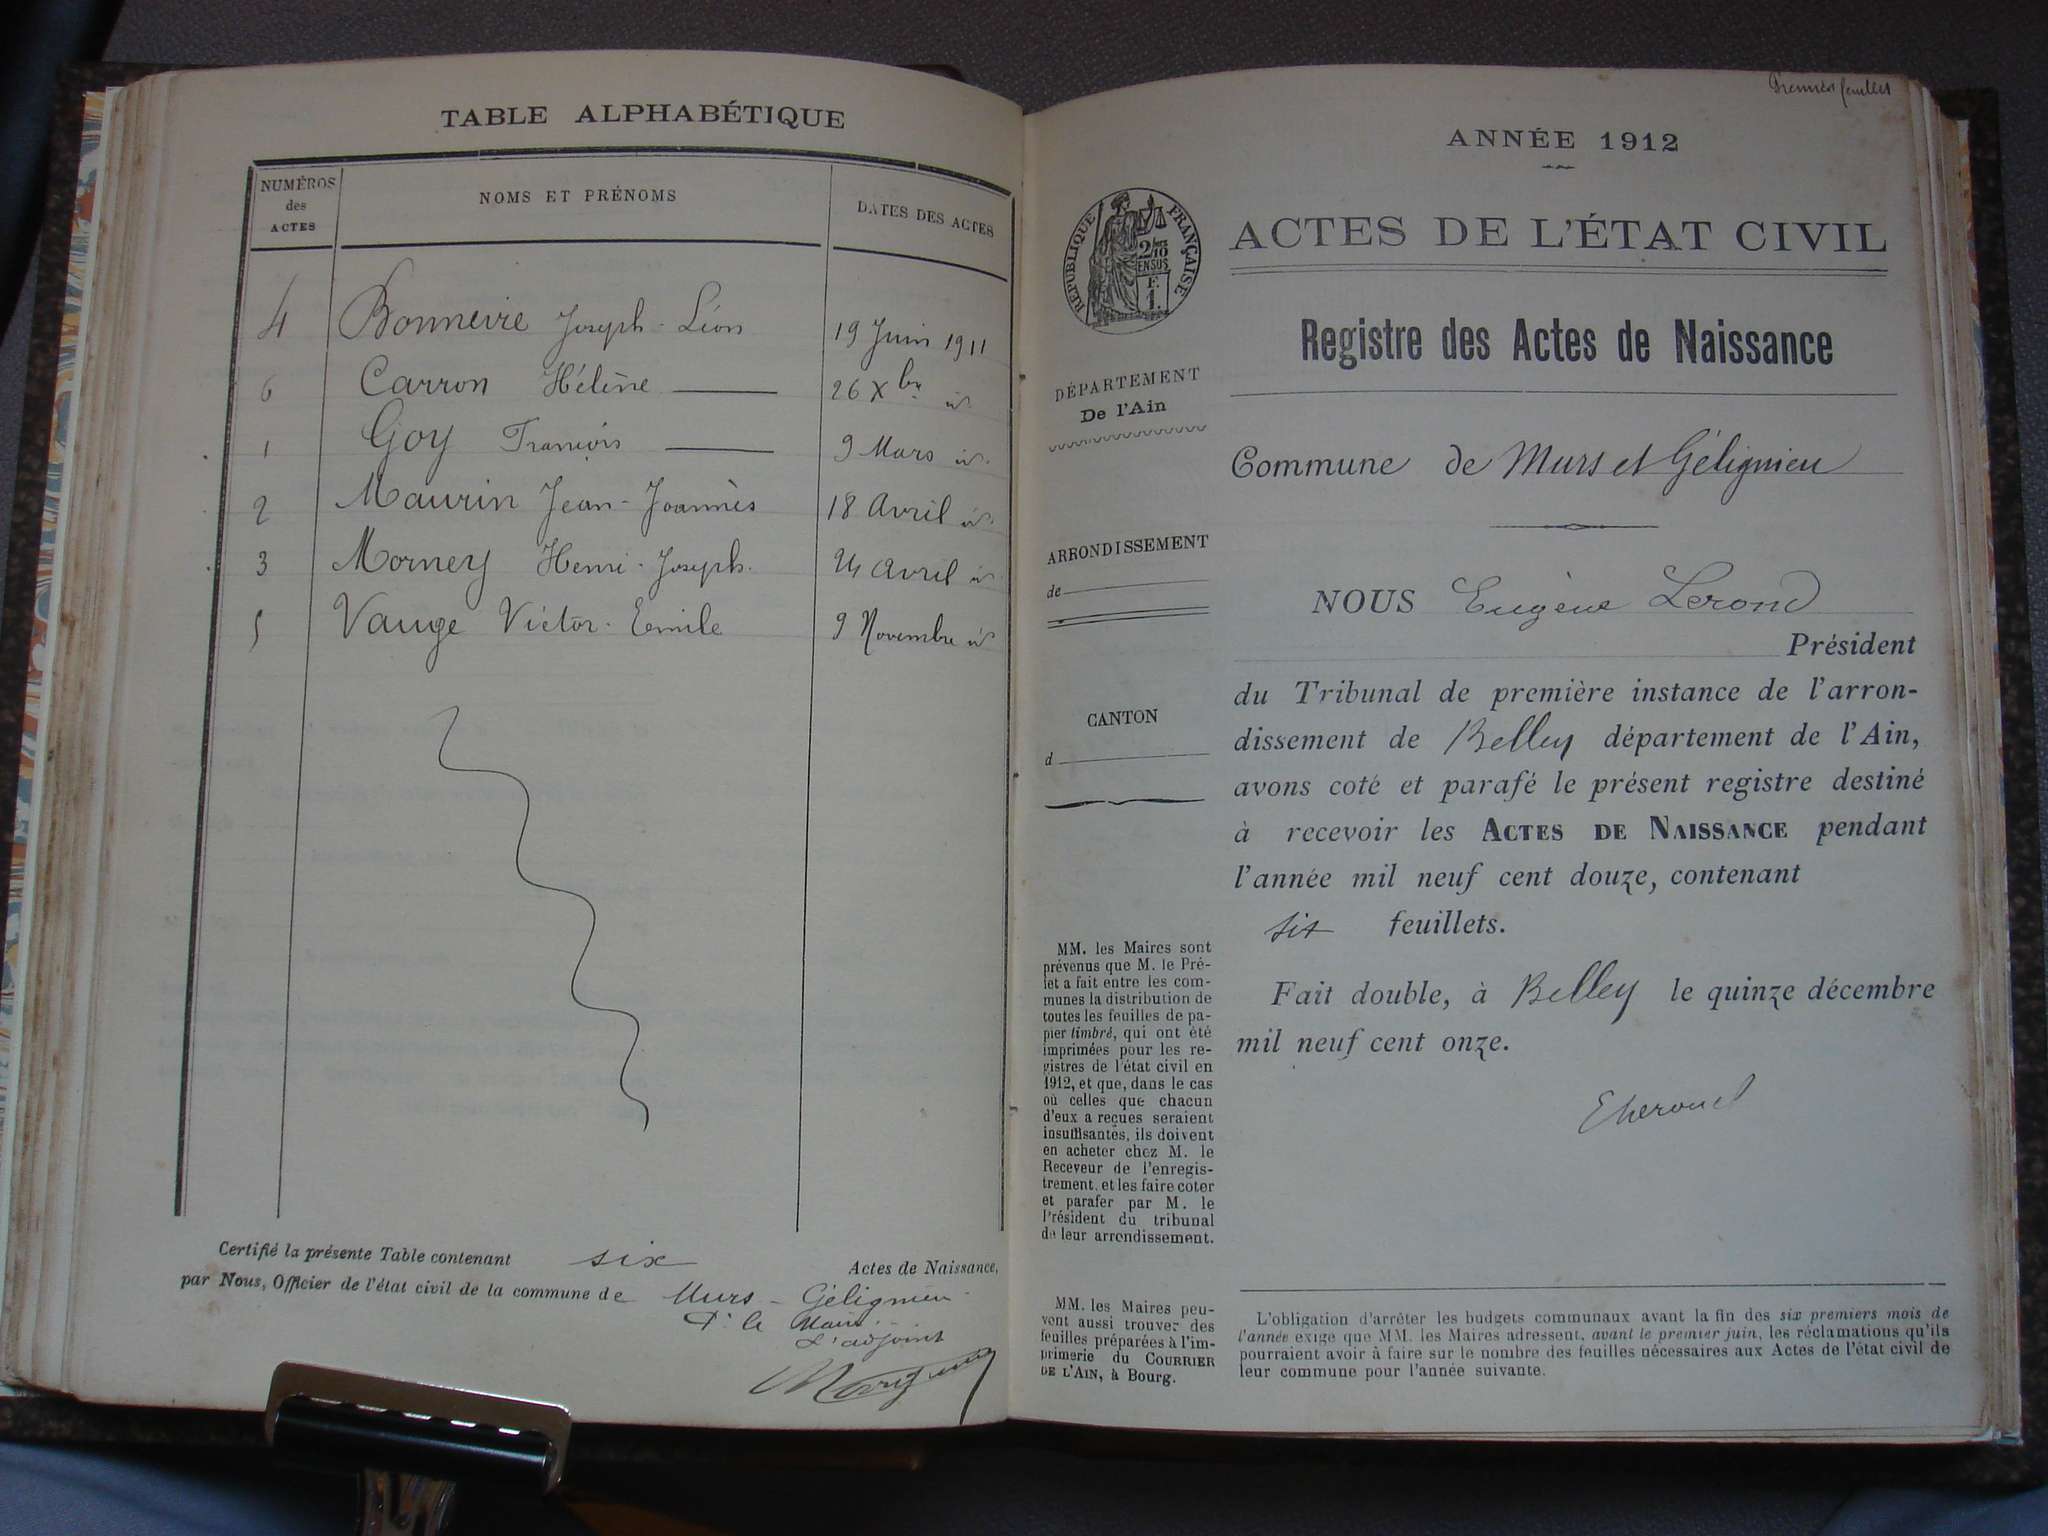 TABLE ALPHABÉTIQUE
NUMÉROS des ACTES
NOMS ET PRÉNOMS
DATES DES ACTES
4 Bonneire Joseph-Léon 19 Juin 1911
6 Carron Hélène 26 Xbre id
1 Goy François 9 Mars id.
2 Maurin Jean-Joannès 18 Avril id.
3 Morney Henri-Joseph. 24 Avril id
5 Vauge Victor-Emile 9 Novembre id
Certifié la présente Table contenant six Actes de Naissance,
par Nous, Officier de l'état civil de la commune de Murs-Gélignieu
Pr le Maire
L'adjoint
Premier feuillet
ANNÉE 1912
ACTES DE L'ÉTAT CIVIL
RÉPUBLIQUE FRANÇAISE
2/10
EN SUS
F.
1.
Registre des Actes de Naissance
DÉPARTEMENT
De l'Ain
Commune de Murs et Gélignieu
ARRONDISSEMENT
de
NOUS Eugène Lerond
Président
CANTON
d
du Tribunal de première instance de l'arron-
dissement de Belley département de l'Ain,
avons coté et parafé le présent registre destiné
à recevoir les ACTES DE NAISSANCE pendant
l'année mil neuf cent douze, contenant
six feuillets.
Fait double, à Belley le quinze décembre
mil neuf cent onze.
MM. les Maires sont
prévenus que M. le Pré-
fet a fait entre les com-
munes la distribution de
toutes les feuilles de pa-
pier timbré, qui ont été
imprimées pour les re-
gistres de l'état civil en
1912, et que, dans le cas
où celles que chacun
d'eux a reçues seraient
insuffisantes, ils doivent
en acheter chez M. le
Receveur de l'enregis-
trement, et les faire coter
et parafer par M. le
Président du tribunal
de leur arrondissement.
MM. les Maires peu-
vent aussi trouver des
feuilles préparées à l'im-
primerie du COURRIER
DE L'AIN, à Bourg.
L'obligation d'arrêter les budgets communaux avant la fin des six premiers mois de
l'année exige que MM. les Maires adressent, avant le premier juin, les réclamations qu'ils
pourraient avoir à faire sur le nombre des feuilles nécessaires aux Actes de l'état civil de
leur commune pour l'année suivante.